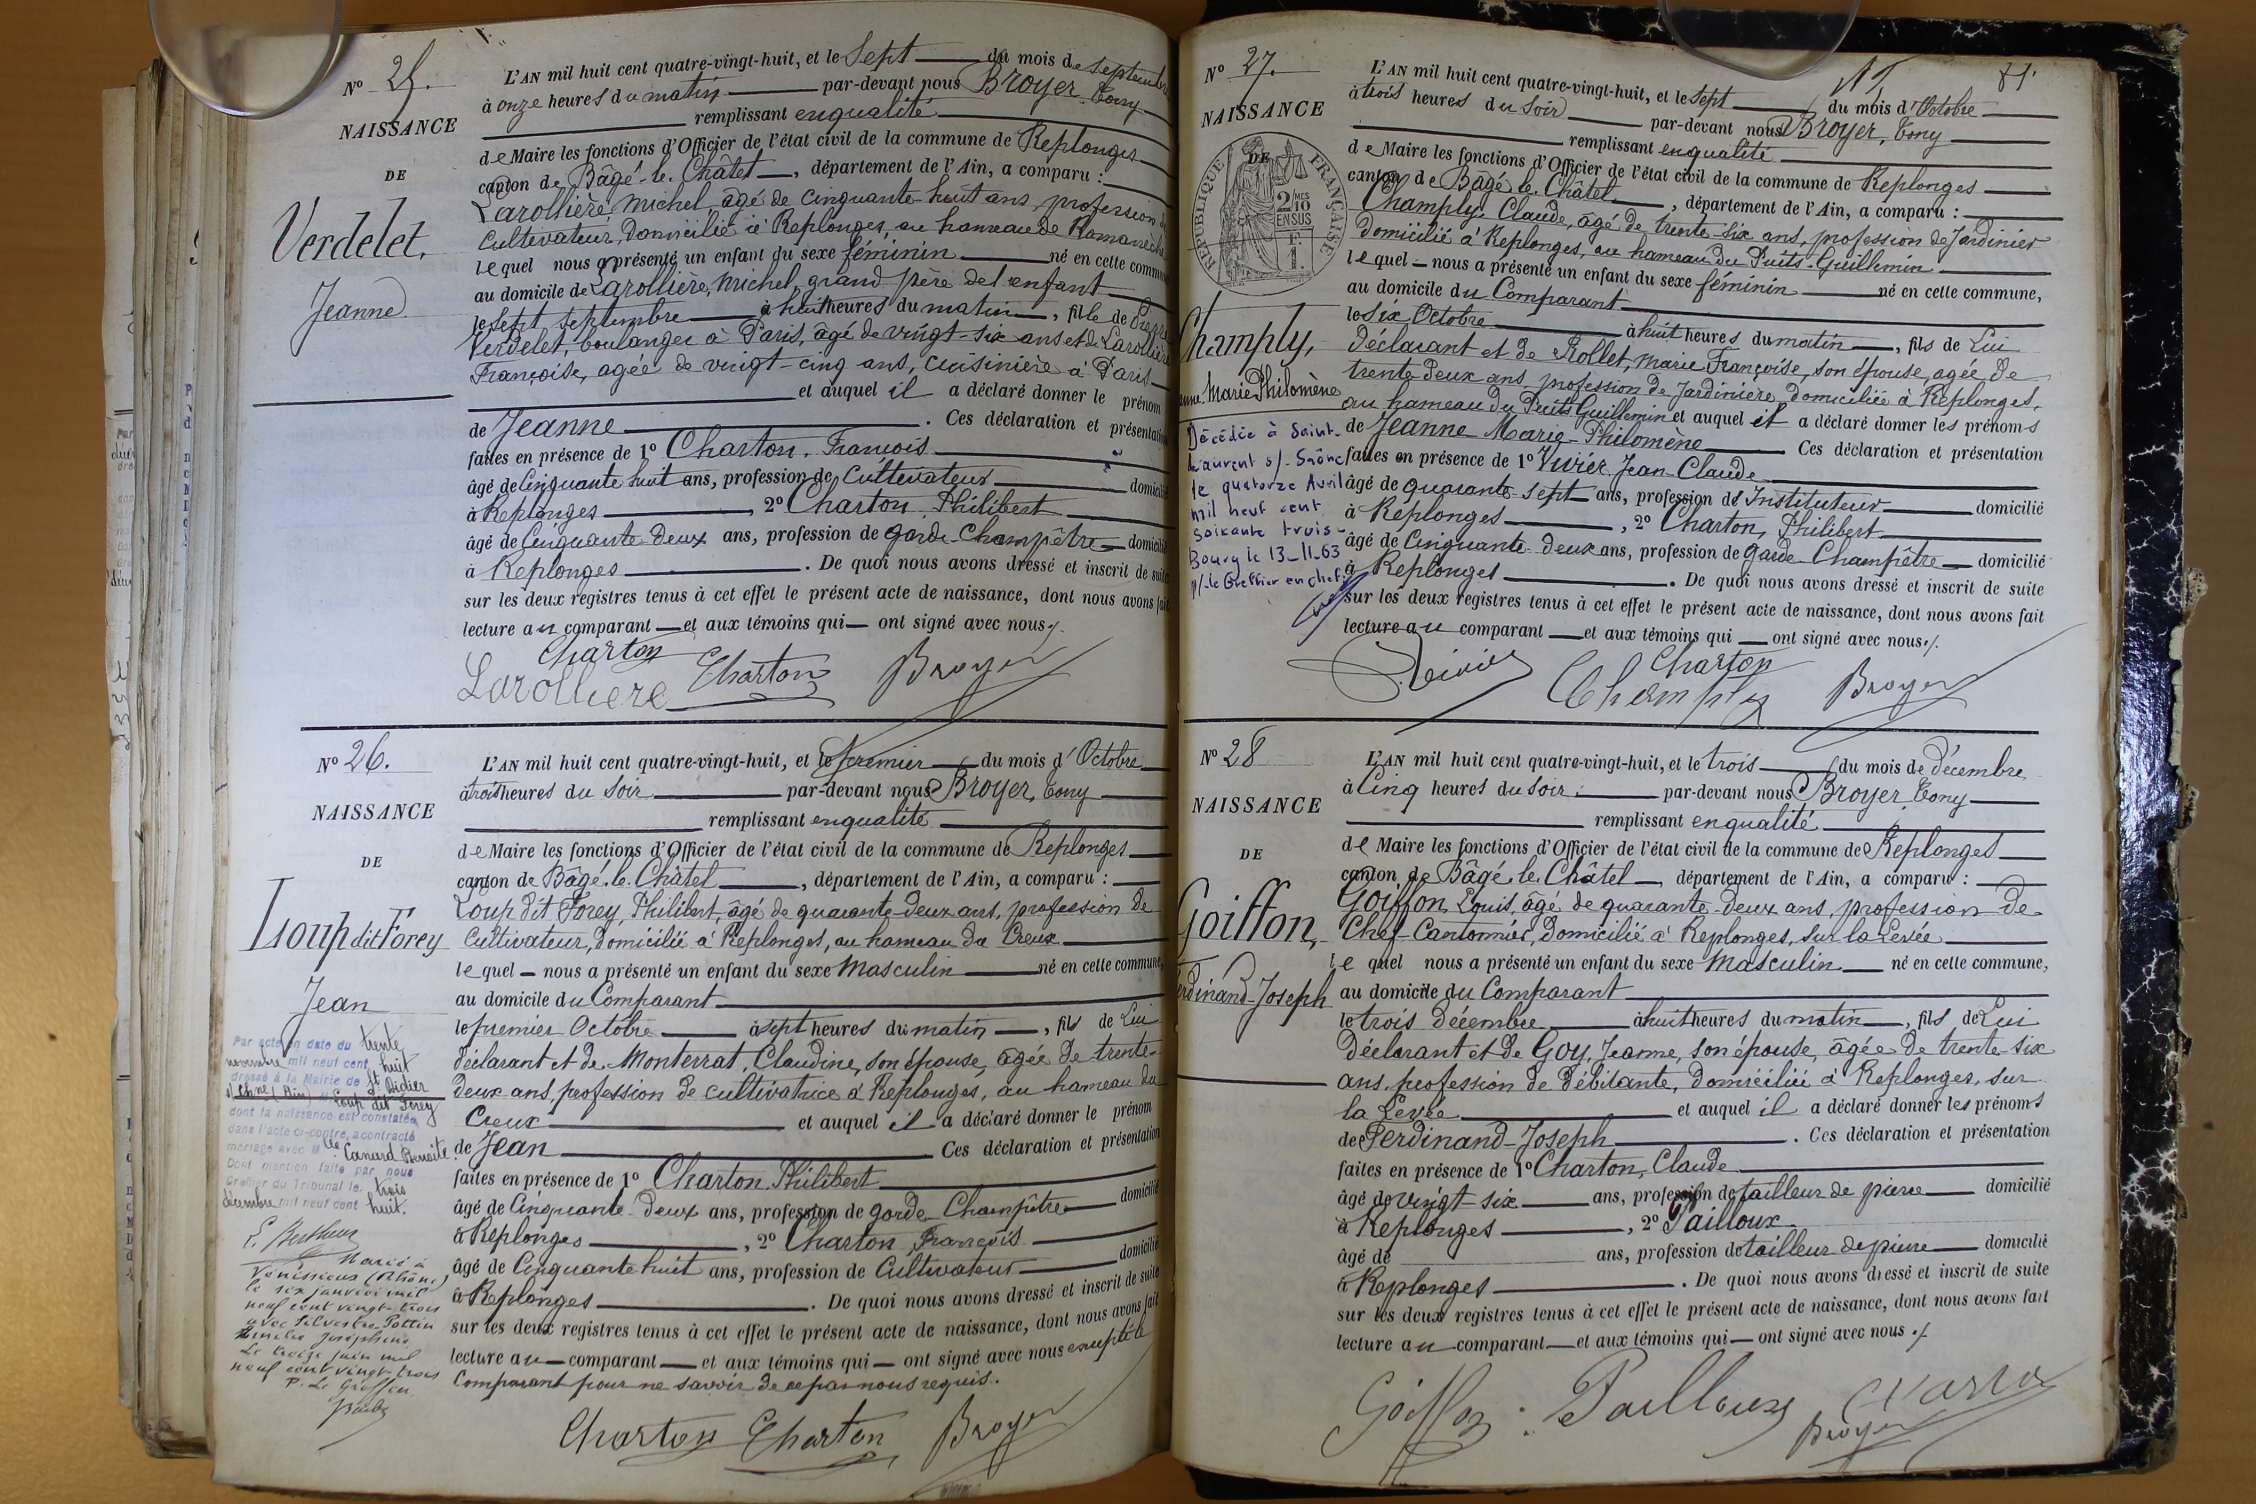 Nº 25.
NAISSANCE
DE
Verdelet,
Jeanne
L'AN mil huit cent quatre-vingt-huit, et le Sept du mois de Septembre
à onze heures du matin par-devant nous Broyer, Tony
remplissant en qualité
de Maire les fonctions d'Officier de l'état civil de la commune de Replonges
canton de Bâgé-le-Châtel, département de l'Ain, a comparu :
Larollière, Michel, âgé de cinquante-huit ans, profession de
Cultivateur, Domicilié à Replonges, au hameau de Romanèche
lequel nous a présenté un enfant du sexe féminin né en cette commune
au domicile de Larollière, Michel, grand père de l'enfant
le sept septembre à huit heures du matin, fille de Pierre
Verdelet, boulanger à Paris, âgé de vingt-six ans et de Larollière
Françoise, agée de vingt-cinq ans, cuisinière à Paris
et auquel il a déclaré donner le prénom
de Jeanne. Ces déclaration et présentation
faites en présence de 1º Charton, François
âgé de Cinquante huit ans, profession de Cultivateur domicilié
à Replonges, 2º Charton, Philibert
âgé de Cinquante-Deux ans, profession de garde-Champêtre domicilié
à Replonges. De quoi nous avons dressé et inscrit de suite
sur les deux registres tenus à cet effet le présent acte de naissance, dont nous avons fait
lecture au comparant et aux témoins qui ont signé avec nous ./.
Charton
Larolliere Charton Broyer
Nº 26.
NAISSANCE
DE
Loup dit Forey
Jean
L'AN mil huit cent quatre-vingt-huit, et le Premier du mois d'Octobre
à trois heures du Soir par-devant nous Broyer, Tony
remplissant en qualité
de Maire les fonctions d'Officier de l'état civil de la commune de Replonges
canton de Bâgé-le-Châtel, département de l'Ain, a comparu :
Loup dit Forey, Philibert, âgé de quarante-deux ans, profession de
Cultivateur, domicilié à Replonges, au hameau du Creux
lequel nous a présenté un enfant du sexe Masculin né en cette commune,
au domicile du Comparant
le premier Octobre à sept heures du matin, fils de Lui
déclarant et de Monterrat, Claudine, son épouse, âgée de trente-
deux ans, profession de cultivatrice à Replonges, au hameau du
Creux et auquel il a déclaré donner le prénom
de Jean Ces déclaration et présentation
faites en présence de 1º Charton, Philibert
âgé de Cinquante-deux ans, profession de garde-Champêtre domicilié
à Replonges, 2º Charton, François
âgé de Cinquante huit ans, profession de Cultivateur domicilié
à Replonges. De quoi nous avons dressé et inscrit de suite
sur les deux registres tenus à cet effet le présent acte de naissance, dont nous avons fait
lecture au comparant et aux témoins qui ont signé avec nous excepté le
Comparant pour ne savoir de ce par nous requis.
Charton Charton Broyer
Par acte en date du trente
novembre mil neuf cent huit
dressé à la Mairie de St Didier
s/ Chne (Ain) Loup dit Forey
dont la naissance est constatée
dans l'acte ci-contre, a contracté
mariage avec Mlle Canard Benoite.
Dont mention faite par nous
Greffier du Tribunal le trois
décembre mil neuf cent huit.
Marié à
Vénissieux (Rhône)
le six janvier mil
neuf cent vingt-trois
avec Silvestre-Pottin
Joséphine
Le treize juin mil
neuf cent vingt-trois
P. Le Greffier
Nº 27.
NAISSANCE
DE
RÉPUBLIQUE FRANÇAISE
2/10MES
EN SUS
Champly,
Marie Philomène
Décédée à Saint-
Laurent s/-Saône
le quatorze Avril
mil neuf cent
soixante trois-
Bourg le 13-11-63
p/-le Greffier en chef
L'AN mil huit cent quatre-vingt-huit, et le Sept du mois d'Octobre
à trois heures du Soir par-devant nous Broyer, Tony
remplissant en qualité
de Maire les fonctions d'Officier de l'état civil de la commune de Replonges
canton de Bâgé-le-Châtel, département de l'Ain, a comparu :
Champly, Claude, âgé de trente-six ans, profession de Jardinier
Domicilié à Replonges, au hameau du Puits-Guillemin
lequel nous a présenté un enfant du sexe féminin né en cette commune,
au domicile du Comparant
le Six Octobre à huit heures du matin, fils de Lui
Déclarant et de Rollet, Marie Françoise, son épouse, agée de
trente-deux ans, profession de Jardinière, domiciliée à Replonges,
au hameau du Puits Guillemin et auquel il a déclaré donner les prénoms
de Jeanne Marie-Philomène Ces déclaration et présentation
faites en présence de 1º Vivier, Jean-Claude
âgé de quarante-sept ans, profession d'Instituteur domicilié
à Replonges, 2º Charton, Philibert
âgé de Cinquante-deux ans, profession de garde-Champêtre domicilié
à Replonges. De quoi nous avons dressé et inscrit de suite
sur les deux registres tenus à cet effet le présent acte de naissance, dont nous avons fait
lecture au comparant et aux témoins qui ont signé avec nous ./.
Vivier Charton
Champly Broyer
Nº 28
NAISSANCE
DE
Goiffon,
Ferdinand-Joseph
L'AN mil huit cent quatre-vingt-huit, et le trois du mois de décembre
à Cinq heures du soir par-devant nous Broyer, Tony
remplissant en qualité
de Maire les fonctions d'Officier de l'état civil de la commune de Replonges
canton de Bâgé-le-Châtel, département de l'Ain, a comparu :
Goiffon, Louis, âgé de quarante-deux ans, profession de
Chef-Cantonnier, Domicilié à Replonges, sur la Levée
lequel nous a présenté un enfant du sexe Masculin né en cette commune,
au domicile du Comparant
le trois décembre à huit heures du matin, fils de Lui
Déclarant et de Goy, Jeanne, son épouse, âgée de trente-six
ans, profession de Débitante, Domiciliée à Replonges, sur
la Levée et auquel il a déclaré donner les prénoms
de Ferdinand-Joseph. Ces déclaration et présentation
faites en présence de 1º Charton, Claude
âgé de vingt-six ans, profession de tailleur de pierre domicilié
à Replonges, 2º Pailloux
âgé de ans, profession de tailleur de pierre domicilié
à Replonges. De quoi nous avons dressé et inscrit de suite
sur les deux registres tenus à cet effet le présent acte de naissance, dont nous avons fait
lecture au comparant et aux témoins qui ont signé avec nous ./.
Goiffon Pailloux Charton
Broyer